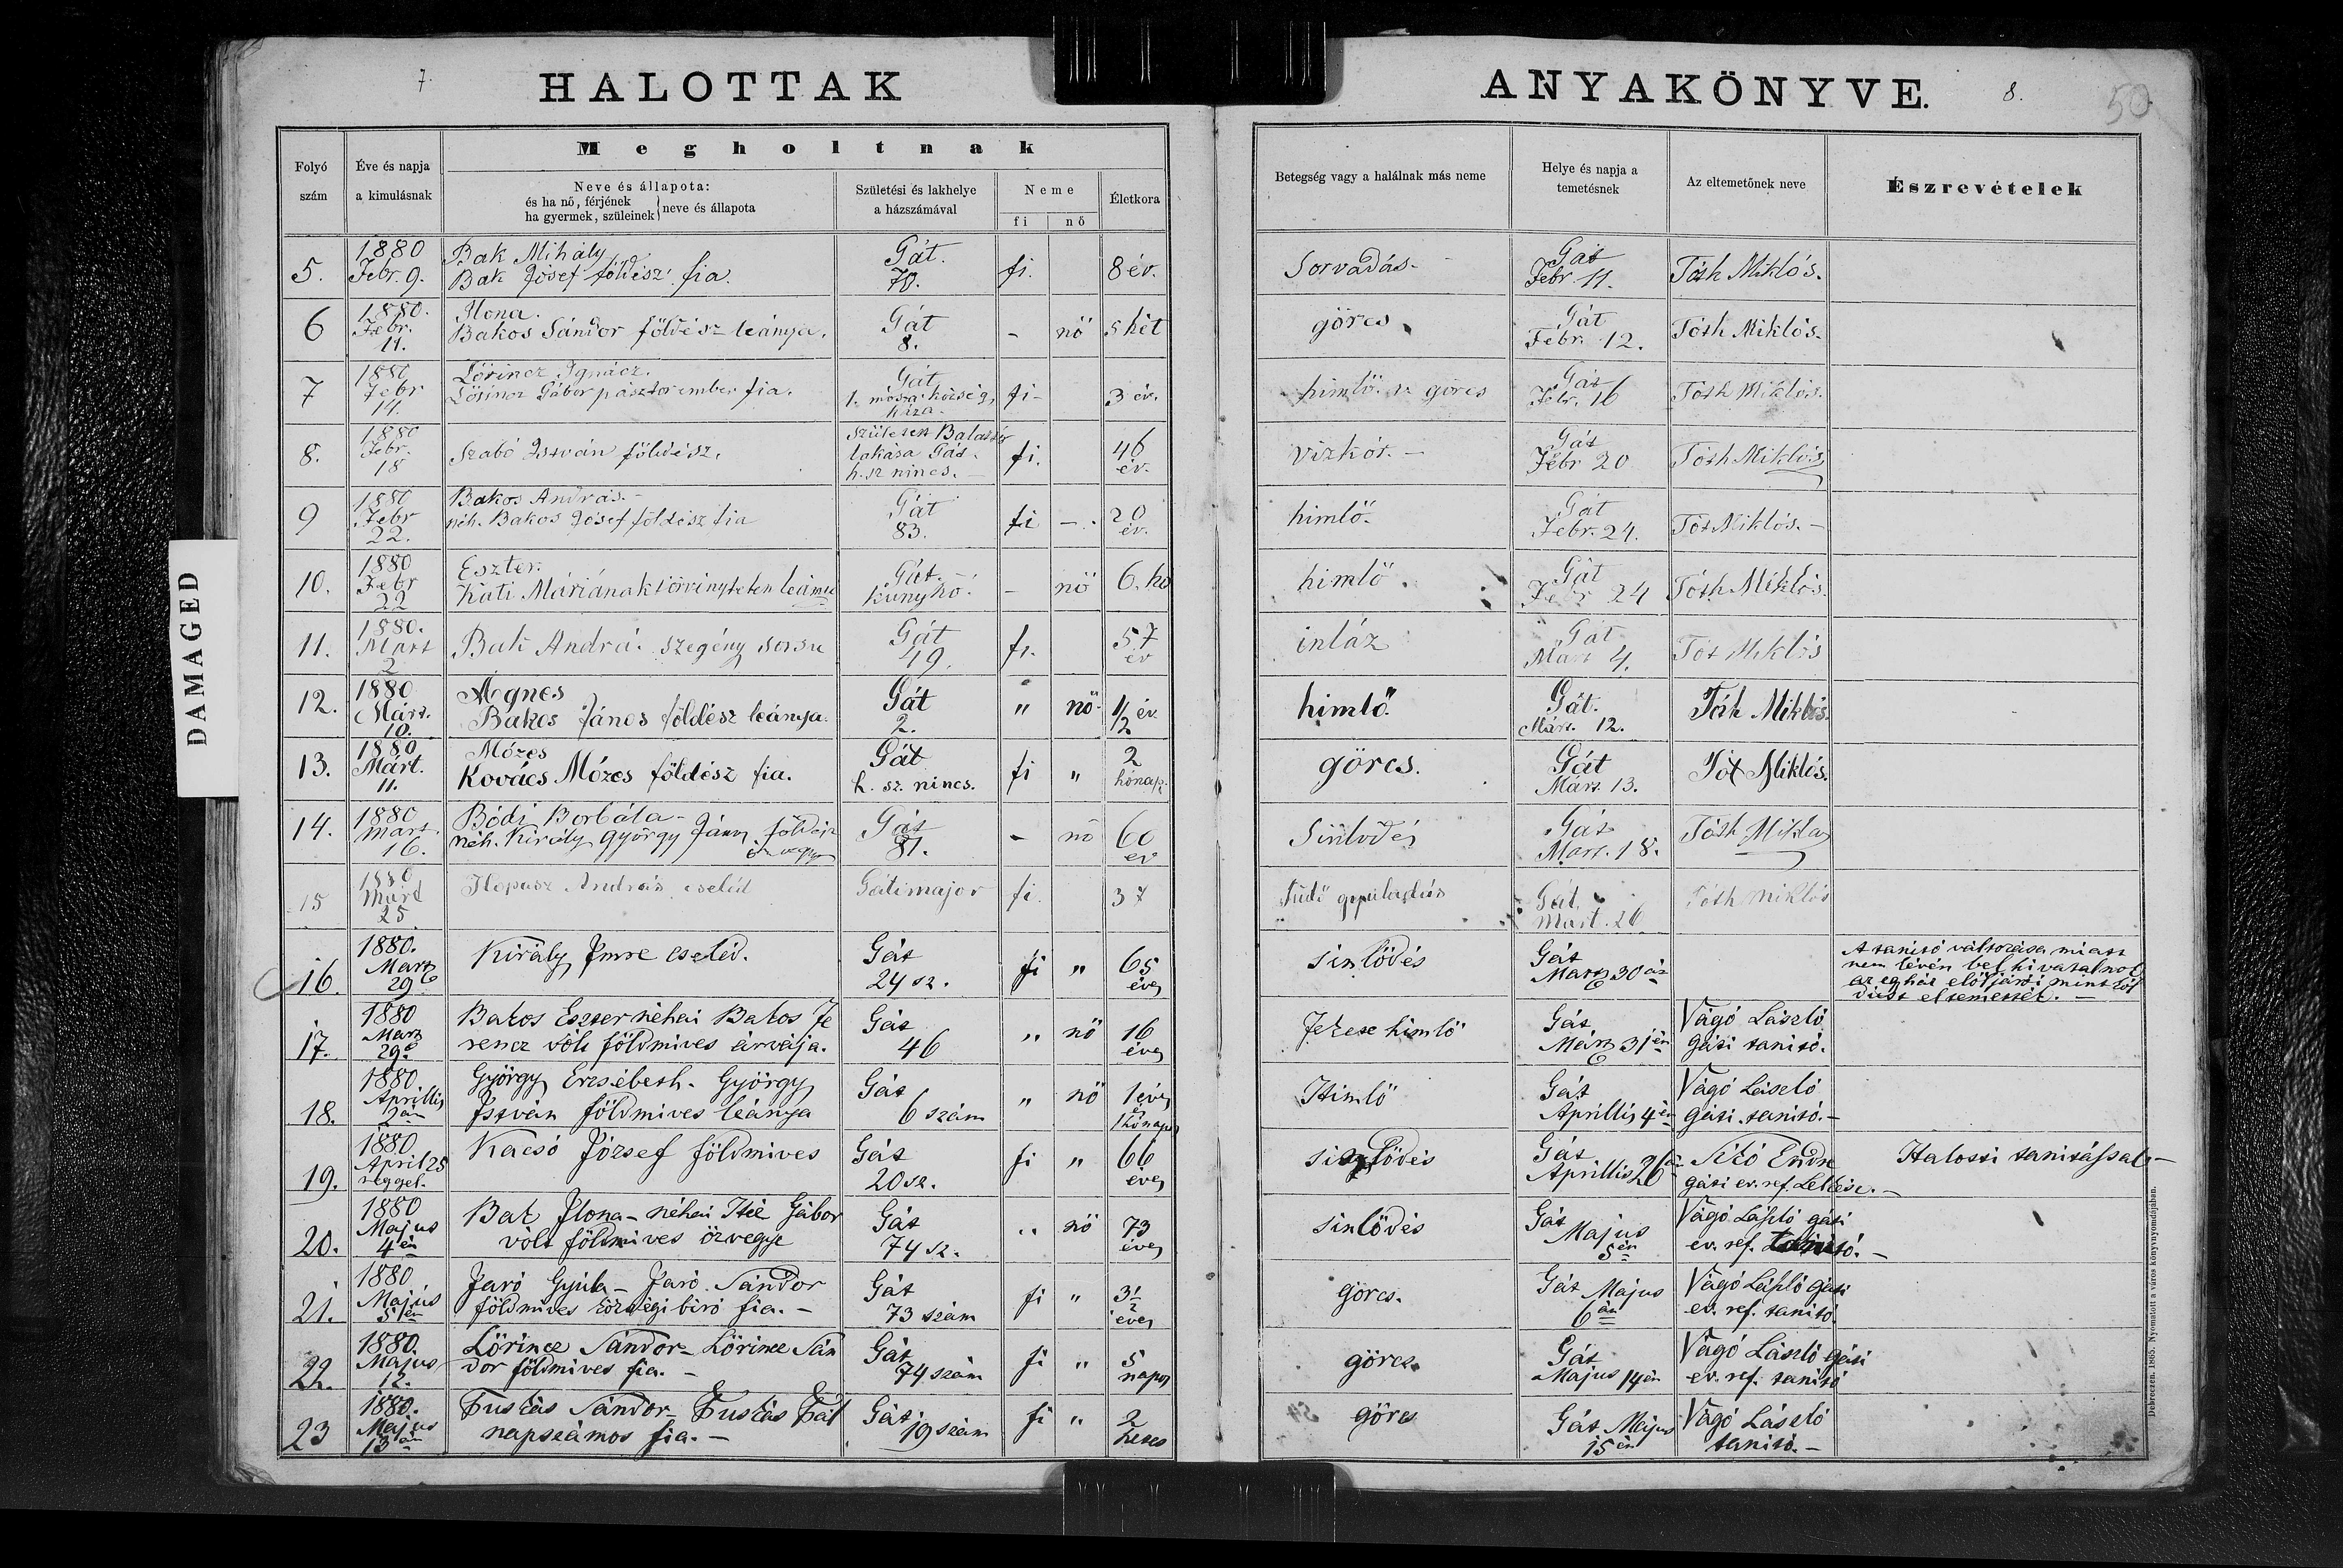 7.
HALOTTAK
ANYAKÖNYVE.
8.
50
DAMAGED
Folyó szám
Éve és napja a kimulásnak
Megholtnak
Neve és állapota:
és ha nő, férjének
ha gyermek, szüleinek
neve és állapota
Születési és lakhelye a házszámával
Neme
fi
nő
Életkora
Betegség vagy a halálnak más neme
Helye és napja a temetésnek
Az eltemetőnek neve
Észrevételek
5. 1880 Febr. 9. Bak Mihály Bak Jósef földész fia. Gát. 70. fi. 8 év. Sorvadás. Gát Febr. 11. Tóth Miklós.
6 1880. Febr. 11. Ilona. Bakos Sándor földész leánya. Gát 8. - nő 5 hét görcs Gát Febr. 12. Tóth Miklós.
7 1880 Febr 14. Lőrincz Ignácz. Lőrincz Gábor pásztor ember fia. Gát 1. község háza. fi - 3 év. himlő görcs Gát Febr. 16 Tóth Miklós.
8. 1880 Febr. 18 Szabó István földész. lakása Gát. h. sz nincs. fi. 46 év. vizkór. Gát Febr 20 Tóth Miklós
9 1880 Febr 22. Bakos András. néh. Bakos Jósef földész fia Gát 83. fi - 20 év. himlő. Gát Febr. 24. Tót Miklós.
10. 1880 Febr 22 Eszter. Kati Máriának törvénytelen leánya Gát. kunyhó. - nő 6. hó himlő. Gát Febr 24 Tóth Miklós.
11. 1880. Mart 2 András szegény sorsu Gát 49. fi. 57 év inláz Gát Mart 4. Tót Miklós
12. 1880 Márt. 10. Ágnes Bakos János földész leánya. Gát 2. " nő. 1/2 év. himlő. Gát. Márt. 12. Tóth Miklós.
13. 1880 Márt. 11. Mózes Kovács Mózes földész fia. Gát h. sz. nincs. fi " 2 hónap. görcs. Gát Márt. 13. Tót Miklós.
14. 1880 Mart. 16. Bódi Borbála néh. Király György János földész özvegye Gát 81. - nő 60 év Sinlődés Gát Mart. 18. Tóth Miklos
15 1880 Márt 25 András cseléd Gáti major fi. 37 Tüdő Gát, Mart. 26 Tóth Miklós
16. 1880. Mart 29 Király Imre cseléd. Gát 24 sz. fi " 65 éves sinlődés Gát Mart 30 án A tanitó változása miatt nem lévén hivatalnok az egház előljárói
17. 1880 Mart 29. Bakos Eszter néhai Bakos Ferencz volt földmives árvája. Gát 46 " nő 16 éves Fekete himlő Gát Márt 31 én Vágó László gáti tanitó.
18. 1880 Aprillis 2 án György Erzsébeth. György István földmives leánya Gát 6 szám " nő 1 éves hónapos Himlő Gát Aprillis 4 én Vágó László gáti tanitó.
19. 1880. April 25 reggel. Kacsó József földmives Gát 20 sz. fi " 66 éves sinlődés Gát Aprillis 26 Endre gáti ev. ref. Lelkész. Halotti tanitással
20. 1880 Majus 4 én Bak Ilona - néhai Gábor volt földmives özvegye Gát 74 sz. " nő 73 éves sinlődés Gát Majus 5 én Vágó László gáti ev. ref. tanitó.
21. 1880 Majus 5 én Jaró Gyula - Jaró Sándor földmives községi biró fia. Gát 73 szám fi " 3 1/2 éves görcs. Gát Majus 6 án Vágó László gáti ev. ref. tanitó.
22. 1880. Majus 12. Lőrincz Sándor - Lőrincz Sándor földmives fia. Gát 74 szám fi " 5 napos görcs. Gát Majus 14 én Vágó László gáti ev. ref. tanitó
23 1880. Majus 13 án Fuskás Sándor - Fuskás Pál napszámos fia. Gát 19 szám fi " 2 hetes görcs Gát Majus 15 én Vágó László tanitó.
Debreczen. 1865. Nyomatott a város könyvnyomdájában.